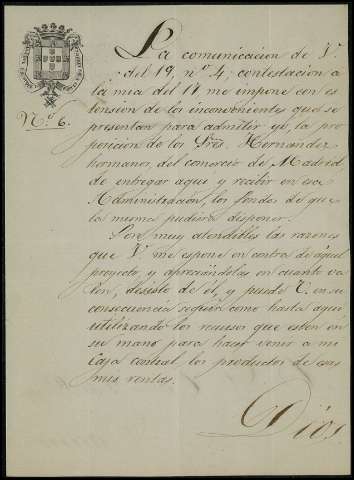 Nº 6.
La comunicacion de V.
del 19, nº 4, contestacion á
la mia del 17 me impone con es
tension de los inconvenientes que se
presentan para admitir yo, la pro
posicion de los Sres. Hernandez
hermanos, del comercio de Madrid
de entregar aqui y recibir en esa
Administracion, los fondos de que
la misma pudiera disponer.
Son muy atendibles las razones
que V. me espone en contra de aquel
proyecto, y apreciándolas en cuanto va
len, desisto de él, y puede V. en su
consecuencia seguir como hasta aqui
utilizando los recursos que esten en
su mano para hacer venir a mi
Caja central los productos de esas
mis rentas.
Dios